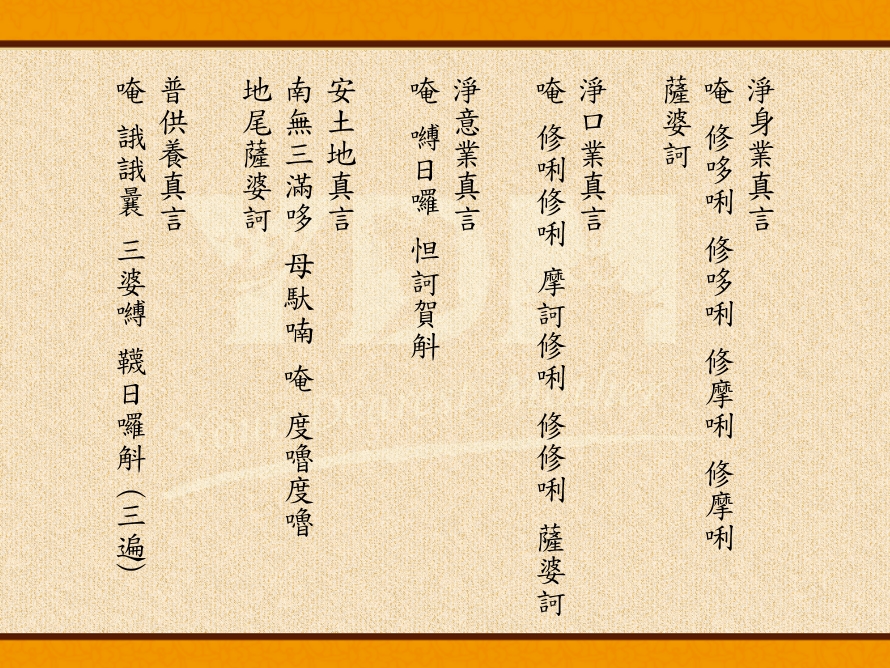 淨身業真言
唵 修哆唎 修哆唎 修摩唎 修摩唎
薩婆訶
淨口業真言
唵 修唎修唎 摩訶修唎 修修唎 薩婆訶
淨意業真言
唵 嚩日囉 怛訶賀斛
安土地真言
南無三滿哆 母馱喃 唵 度嚕度嚕
地尾薩婆訶
普供養真言
唵 誐誐曩 三婆嚩 韈日囉斛（三遍）